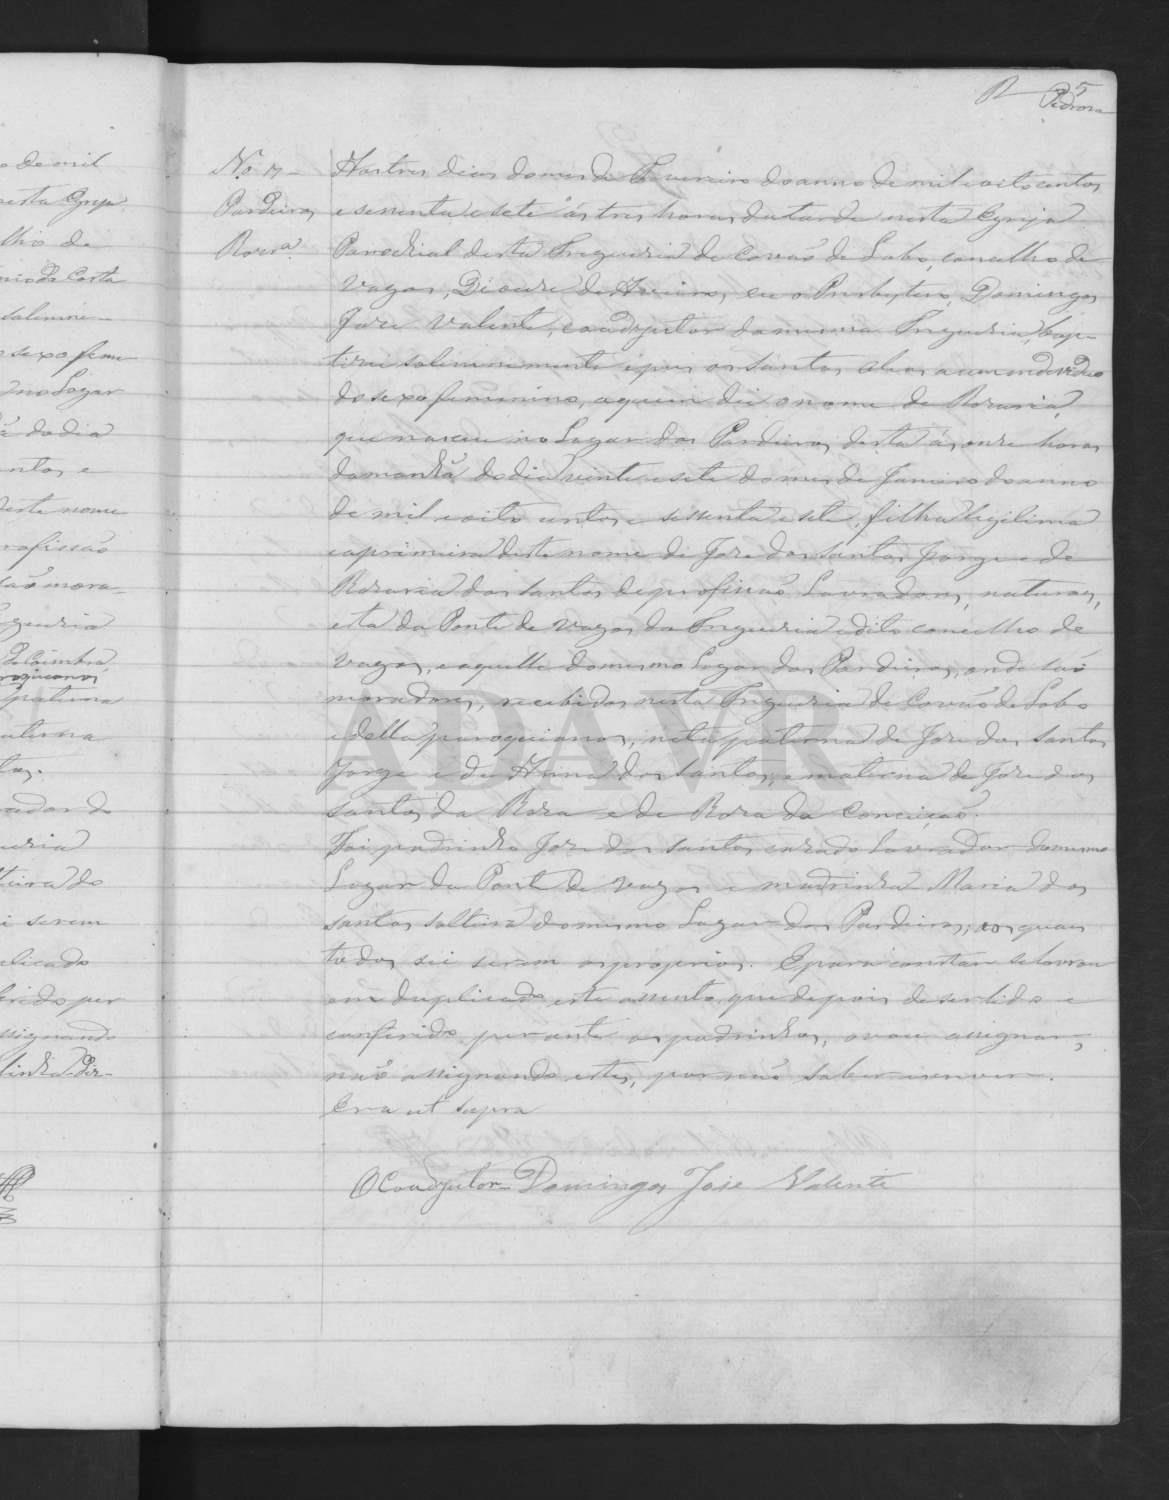 5
Pedrosa
o de mil
nesta Egreja
lho de
nio da Costa
solemne-
sexo femi
no Logar
do dia
ntos e
deste nome
rofissão
são mora-
guezia
de Coimbra
roquianos
paterna
aterna
tos.
rador do
uezia
teira do
i serem
plicado
ferido per
ssignando
N.o
Pardeiros
Rozaria
Aos tres dias do mes de Fevereiro do anno de mil e oito centos
e sessenta e sete ás tres horas da tarde nesta Egreja
Parochial desta Freguezia de Covão de Lobo, concelho de
Vagos, Diocese de Aveiro, eu o Presbytero, Domingos
Jose Valente, coadjutor da mesma Freguezia, bap-
tizei solemnemente e pus os santos oleos a um individuo
do sexo feminino, a quem dei o nome de Rozaria,
que nasceu no Logar dos Pardeiros desta ás onze horas
da manhã do dia vinte e sete do mes de Janeiro do anno
de mil e oito centos e sessenta e sete, filha legitima
e a primeira deste nome de Jose dos Santos Jorge e de
Rozaria dos Santos de profissão Lavradores, naturaes,
esta da Ponte de Vagos da Freguezia e dito concelho de
Vagos, e aquelle do mesmo Logar dos Pardeiros, onde são
moradores, recebidos nesta Freguezia de Covão de Lobo
e della paroquianos, neta paterna de Jose dos Santos
Jorge e de Anna dos Santos, e materna de Jose dos
Santos da Roza e de Roza da Conceição.
Foi padrinho Jose dos Santos cazado Lavrador do mesmo
Logar da Ponte de Vagos e madrinha Maria dos
Santos solteira do mesmo Logar dos Pardeiros, os quaes
todos sei serem os proprios. E para constar se lavrou
em duplicado este assento, que depois de ser lido e
conferido perante os padrinhos, o vou assignar,
não assignando estes, por não saber escrever.
Era ut supra
O Coadjutor - Domingos Jose Valente
ADAVR